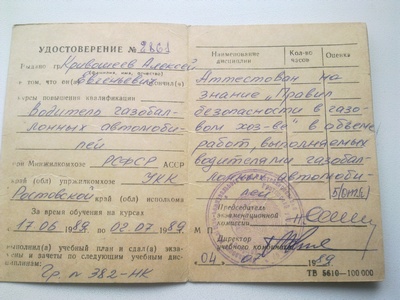 УДОСТОВЕРЕНИЕ № 2661
гр. Кривошеев Алексей
Евгеньевич
в том, что он
курсы повышения квалификации
водитель газобал-
лонных автомоби-
лей
при Минжилкомхозе РСФСР АССР
край (обл) управжилкомхозе УКК
Ростовской край (обл) исполкома
За время обучения на курсах
17.05 1989 02.07 1989
выполнил(а) учебный план и сдал(а) экза-
мены и зачеты по следующим учебным дис-
циплинам:
Гр. № 382-НК
Наименование дисциплин
Кол-во часов
Оценка
Аттестован на
знание „Правил
безопасности в газо-
вом хоз-ве" в объеме
работ, выполняемых
водителями газобал-
лонных автомоби-
лей 5(отл.)
Председатель
экзаменационной
комиссии
М П
Директор
учебного комбината
04 1989
ТВ 5610—100 000